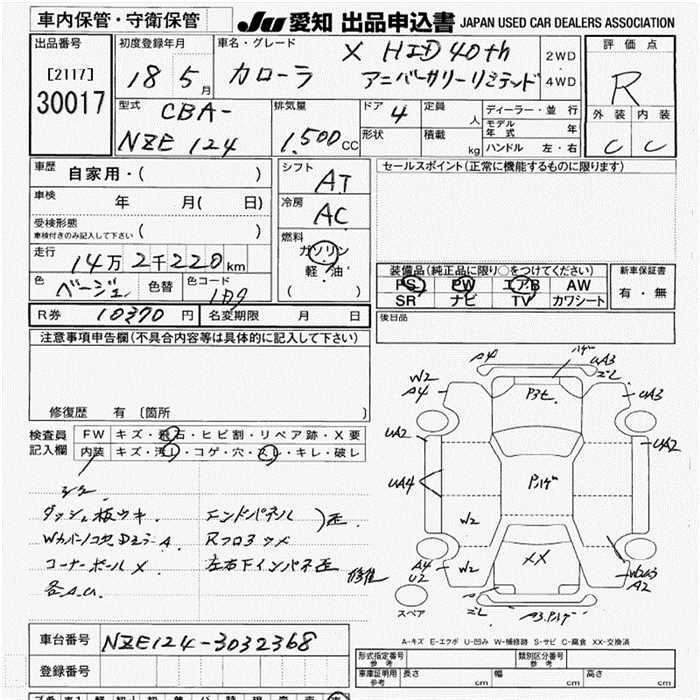 車内保管・守衛保管
JU 愛知 出品申込書 JAPAN USED CAR DEALERS ASSOCIATION
出品番号
[2117]
30017
初度登録年月
18 5月
車名・グレード
X HID 40th
カローラ アニバーサリーリミテッド
2WD
・
4WD
評価点
R
外装 内装
C C
型式 CBA-
NZE124
排気量
1,500CC
ドア 4
形状
定員 人
積載 kg
ディーラー・並行
モデル年式 年
ハンドル 左・右
車歴 自家用・( )
車検 年 月( 日)
受検形態
車検付きのみ記入して下さい ( )
走行 14万2千220km
色 ベージュ 色替 色コード
シフト AT
冷房 AC
燃料
ガソリン
・
軽・油
( )
セールスポイント(正常に機能するものに限ります)
装備品(純正品に限り○をつけてください)
PS PW エアB AW
SR ナビ TV カワシート
新車保証書
有・無
R券 10370円 名変期限 月 日
後日品
注意事項申告欄(不具合内容等は具体的に記入して下さい)
修復歴 有 〔箇所 〕
検査員記入欄
FW キズ・飛石・ヒビ割・リペア跡・X要
内装 キズ・汚れ・コゲ・穴・スレ・キレ・破レ
ダッシュ板ウキ エンドパネル
コーナーポール X 左右下インパネ歪 修准
A4 UA3
W2 A4
P3セ
UA3
UA2 UA2
UA4
W2
A4 U2 W2 XX W2U3 A2
スペア
A-キズ E-エクボ U-凹み W-補修跡 S-サビ C-腐食 XX-交換済
車台番号 NZE124-3032368
登録番号
形式指定番号 参考
類別区分番号 参考
車庫証明用 参考 長さ cm 幅 cm 高さ cm